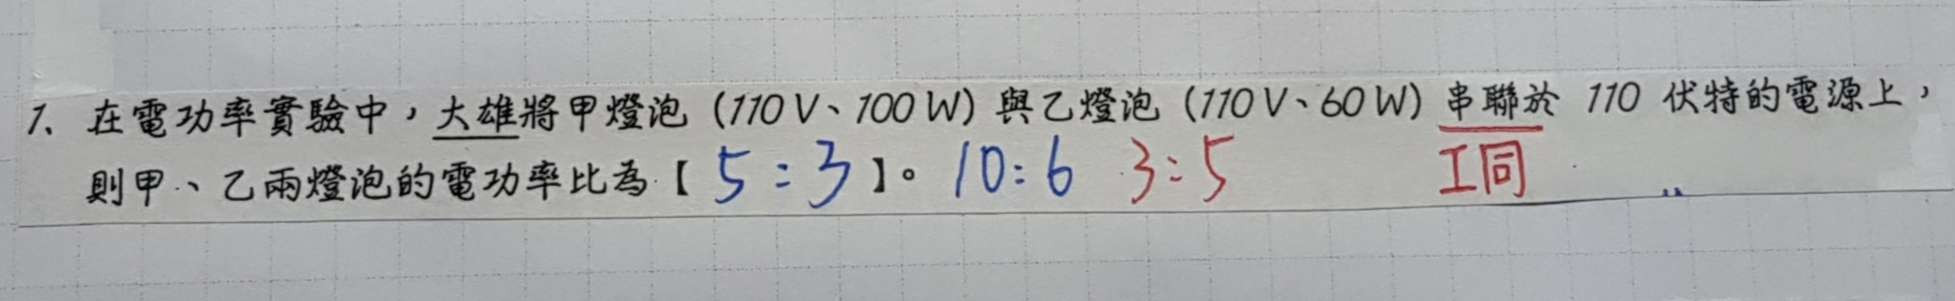 1、在電功率實驗中，大雄將甲燈泡（110V、100W）與乙燈泡（110V、60W）串聯於 110 伏特的電源上，
則甲、乙兩燈泡的電功率比為【5：3】。10：6 3：5 I同